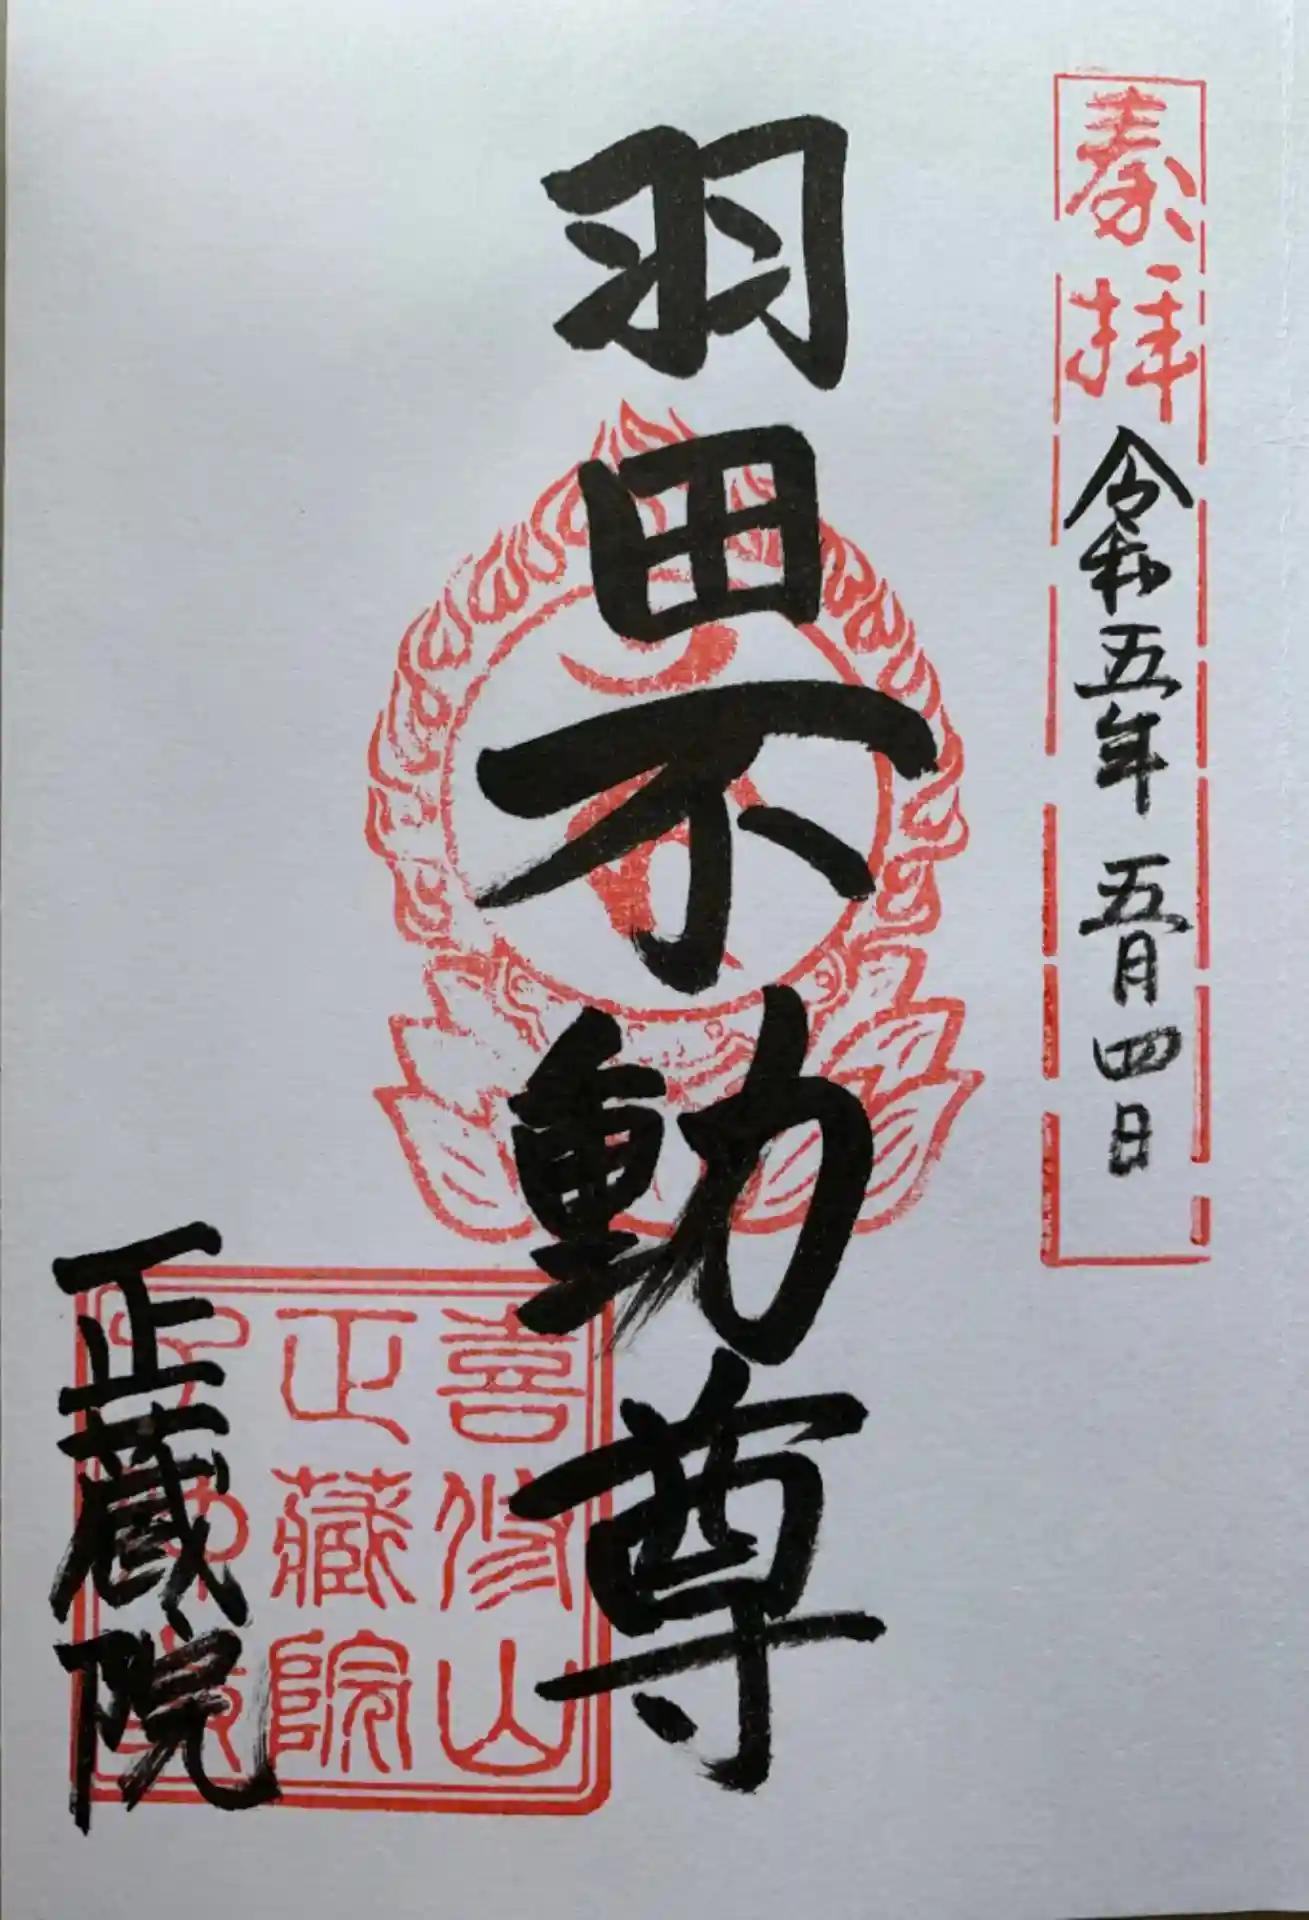 奉拝
令和五年五月四日
羽田不動尊
喜修山
正藏院
正蔵院